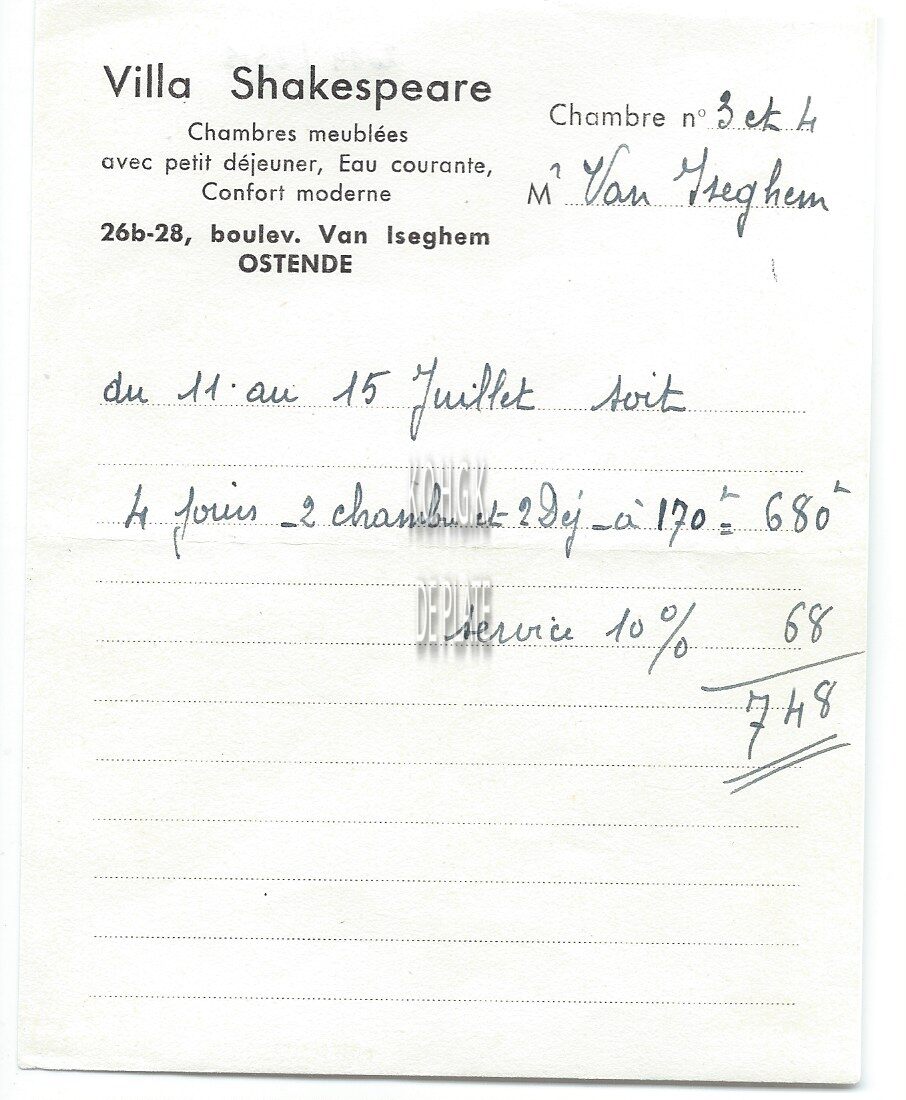 Villa Shakespeare
Chambres meublées
avec petit déjeuner, Eau courante,
Confort moderne
26b-28, boulev. Van Iseghem
OSTENDE
Chambre n° 3 et 4
Mr Van Iseghem
du 11 au 15 Juillet soit
4 jours - 2 chambres et 2 Dej - à 170 = 680
service 10 % 68
748
KOHGK
DE PLATE